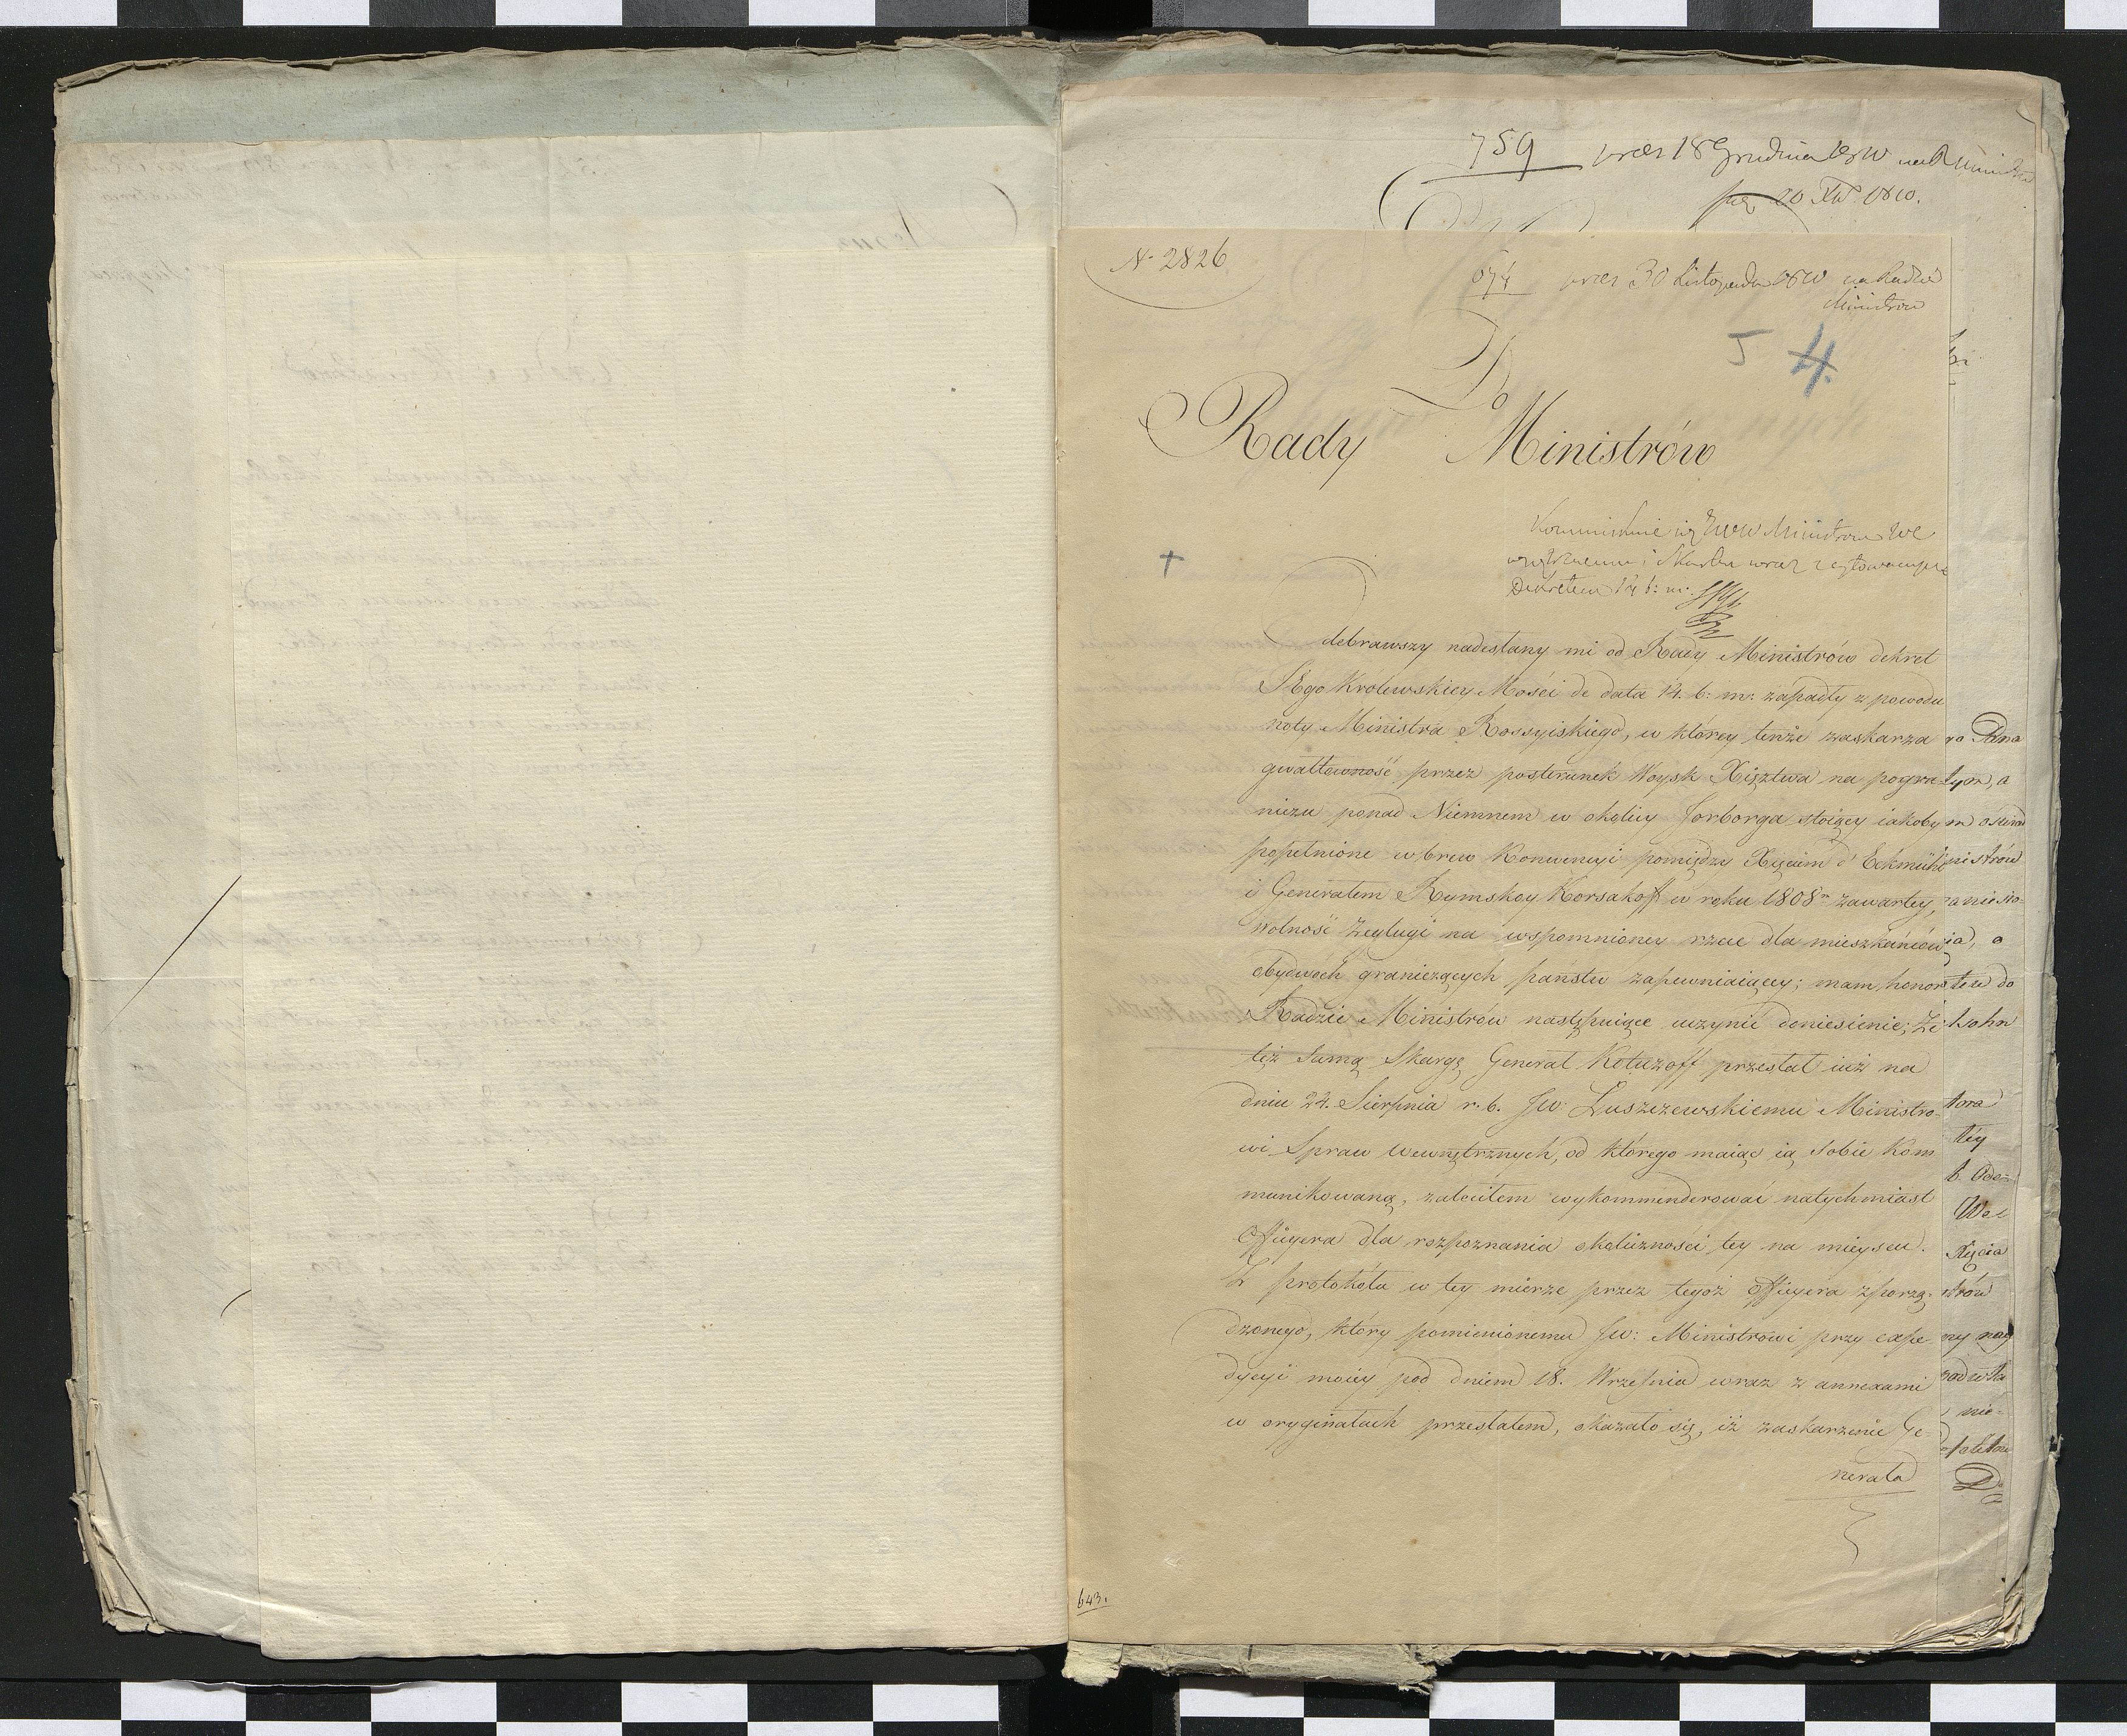 759 prez 18 Grudnia 1810 na R Ministrów
20 XII 1810.
N. 2826
674 prez 30 Listopada 1810 na Radzie
Ministrów
5 4.
Do
Rady Ministrów
+
Ministrom We
wnętrznemu i Skarbu wraz z
Dekretem 14 b: m.
Odebrawszy nadesłany mi od Rady Ministrów dekret
JEgo Krolewskiey Mości de data 14. b: m: zapadły z powodu
noty Ministra Rossyiskiego, w którey tenże zaskarza
gwałtowność przez posterunek Woysk Xięztwa na pogra-
niczu ponad Niemnem w okolicy Jorborga stoiący iakoby
popełnione wbrew Konwencyi pomiędzy Xięciem d'Eckmühl
i Generałem Rymskoy Korsakoff w roku 1808m zawartey,
wolność żeglugi na wspomnioney rzece dla mieszkańców
obydwóch graniczących państw zapewniaiącey; mam honor
Radzie Ministrów następuiące uczynić doniesienie; że
też samą Skargę Generał Kotuzoff przesłał iuż na
dniu 24. Sierpnia r. b. JW Łuszczewskiemu Ministro-
wi Spraw Wewnętrznych, od którego maiąc ią Sobie Kom
munikowaną, zaleciłem wykommenderować natychmiast
Officyera dla rozpoznania okoliczności tey na mieyscu.
Z protokółu w tey mierze przez tegoż Officyera zporzą-
dzonego, który pomienionemu JW: Ministrowi przy expe
dycyi moiey pod dniem 18. Września wraz z annexami
w oryginałach przesłałem, okazało się, iż zaskarzenie Ge-
nerała
643.